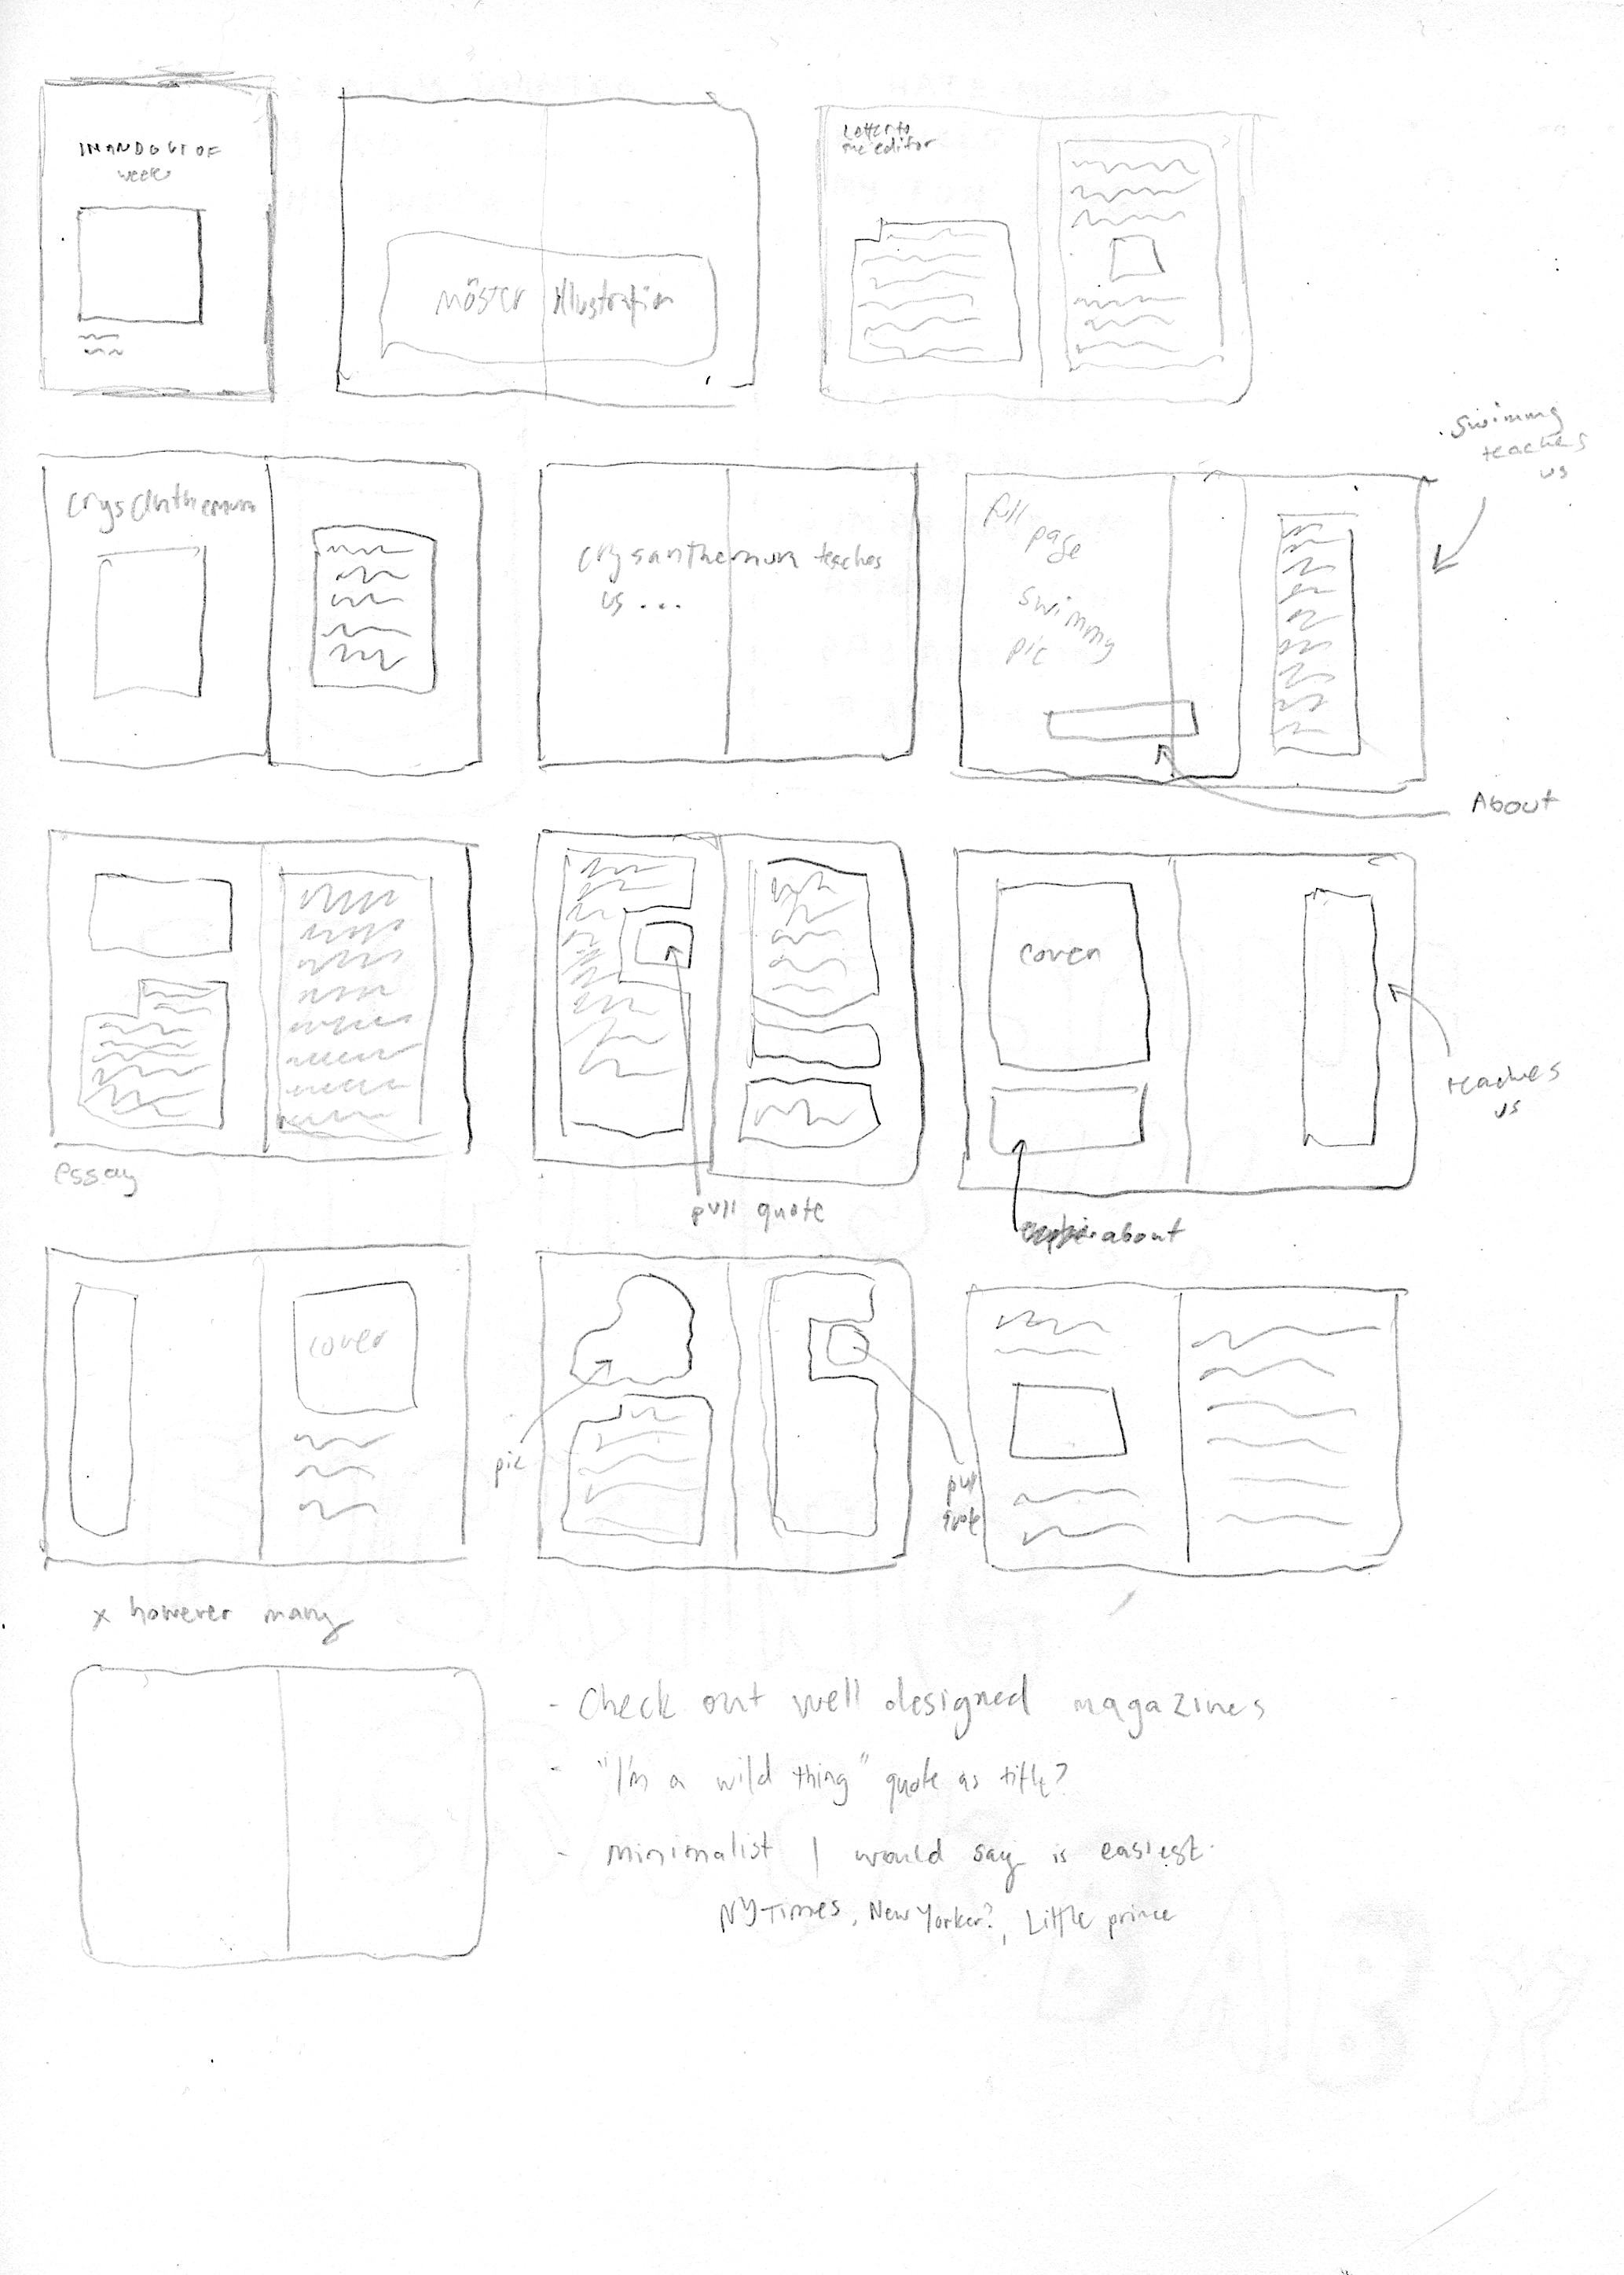 IN AND OUT OF
week
möster illustration
Letter to
the editor
swimmy
teaches
us
crysanthemum
crysanthemum teaches
us...
full
page
swimmy
pic
About
cover
teaches
us
essay
pull quote
about
cover
pic
pull
quote
x however many
- Check out well designed magazines
- "I'm a wild thing" quote as title?
- minimalist I would say is easiest.
NYTimes, New Yorker?, Little prince
BABY